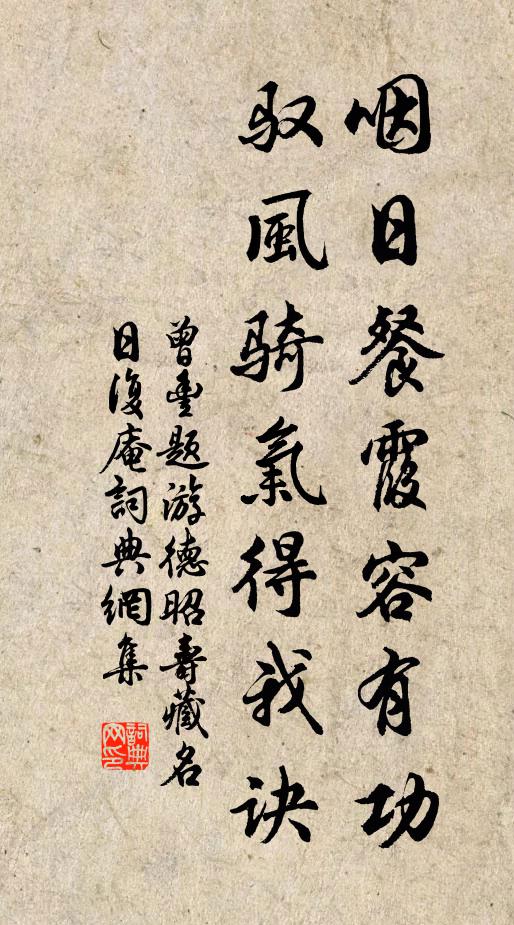 咽日餐霞容有功
驭風骑氣得我诀
曾豐题游德昭壽藏名
日復庵詞典網集
詞典网印